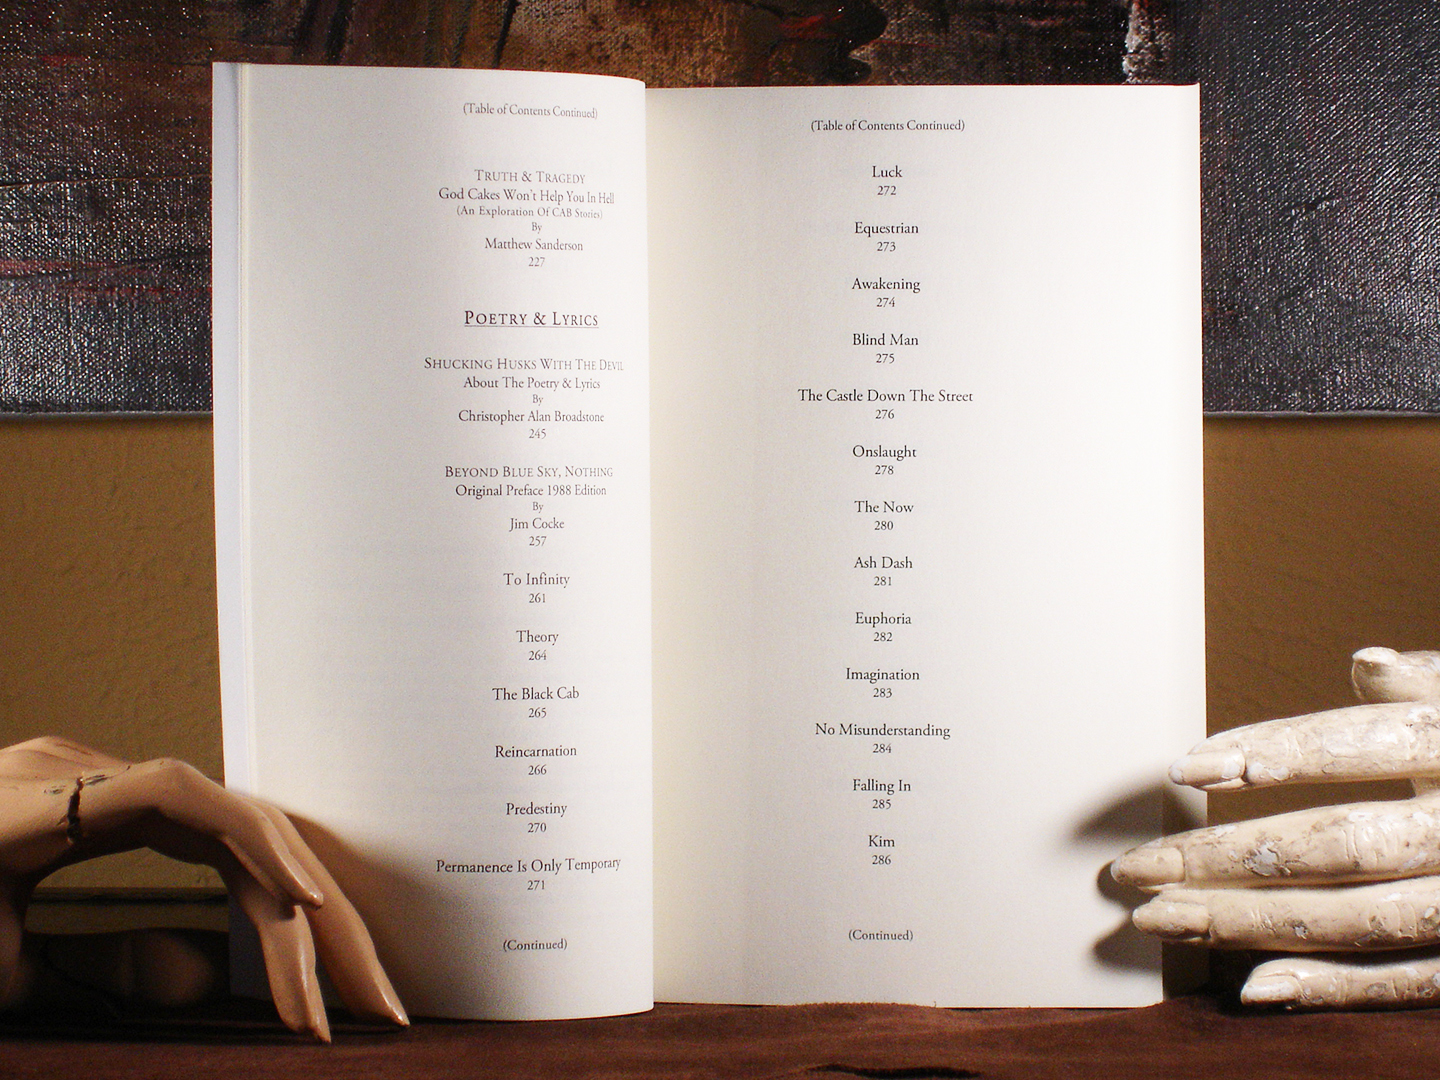 (Table of Contents Continued)
TRUTH & TRAGEDY
God Cakes Won't Help You In Hell
(An Exploration Of CAB Stories)
By
Matthew Sanderson
227
POETRY & LYRICS
SHUCKING HUSKS WITH THE DEVIL
About The Poetry & Lyrics
By
Christopher Alan Broadstone
245
BEYOND BLUE SKY, NOTHING
Original Preface 1988 Edition
By
Jim Cocke
257
To Infinity
261
Theory
264
The Black Cab
265
Reincarnation
266
Predestiny
270
Permanence Is Only Temporary
271
(Continued)
(Table of Contents Continued)
Luck
272
Equestrian
273
Awakening
274
Blind Man
275
The Castle Down The Street
276
Onslaught
278
The Now
280
Ash Dash
281
Euphoria
282
Imagination
283
No Misunderstanding
284
Falling In
285
Kim
286
(Continued)